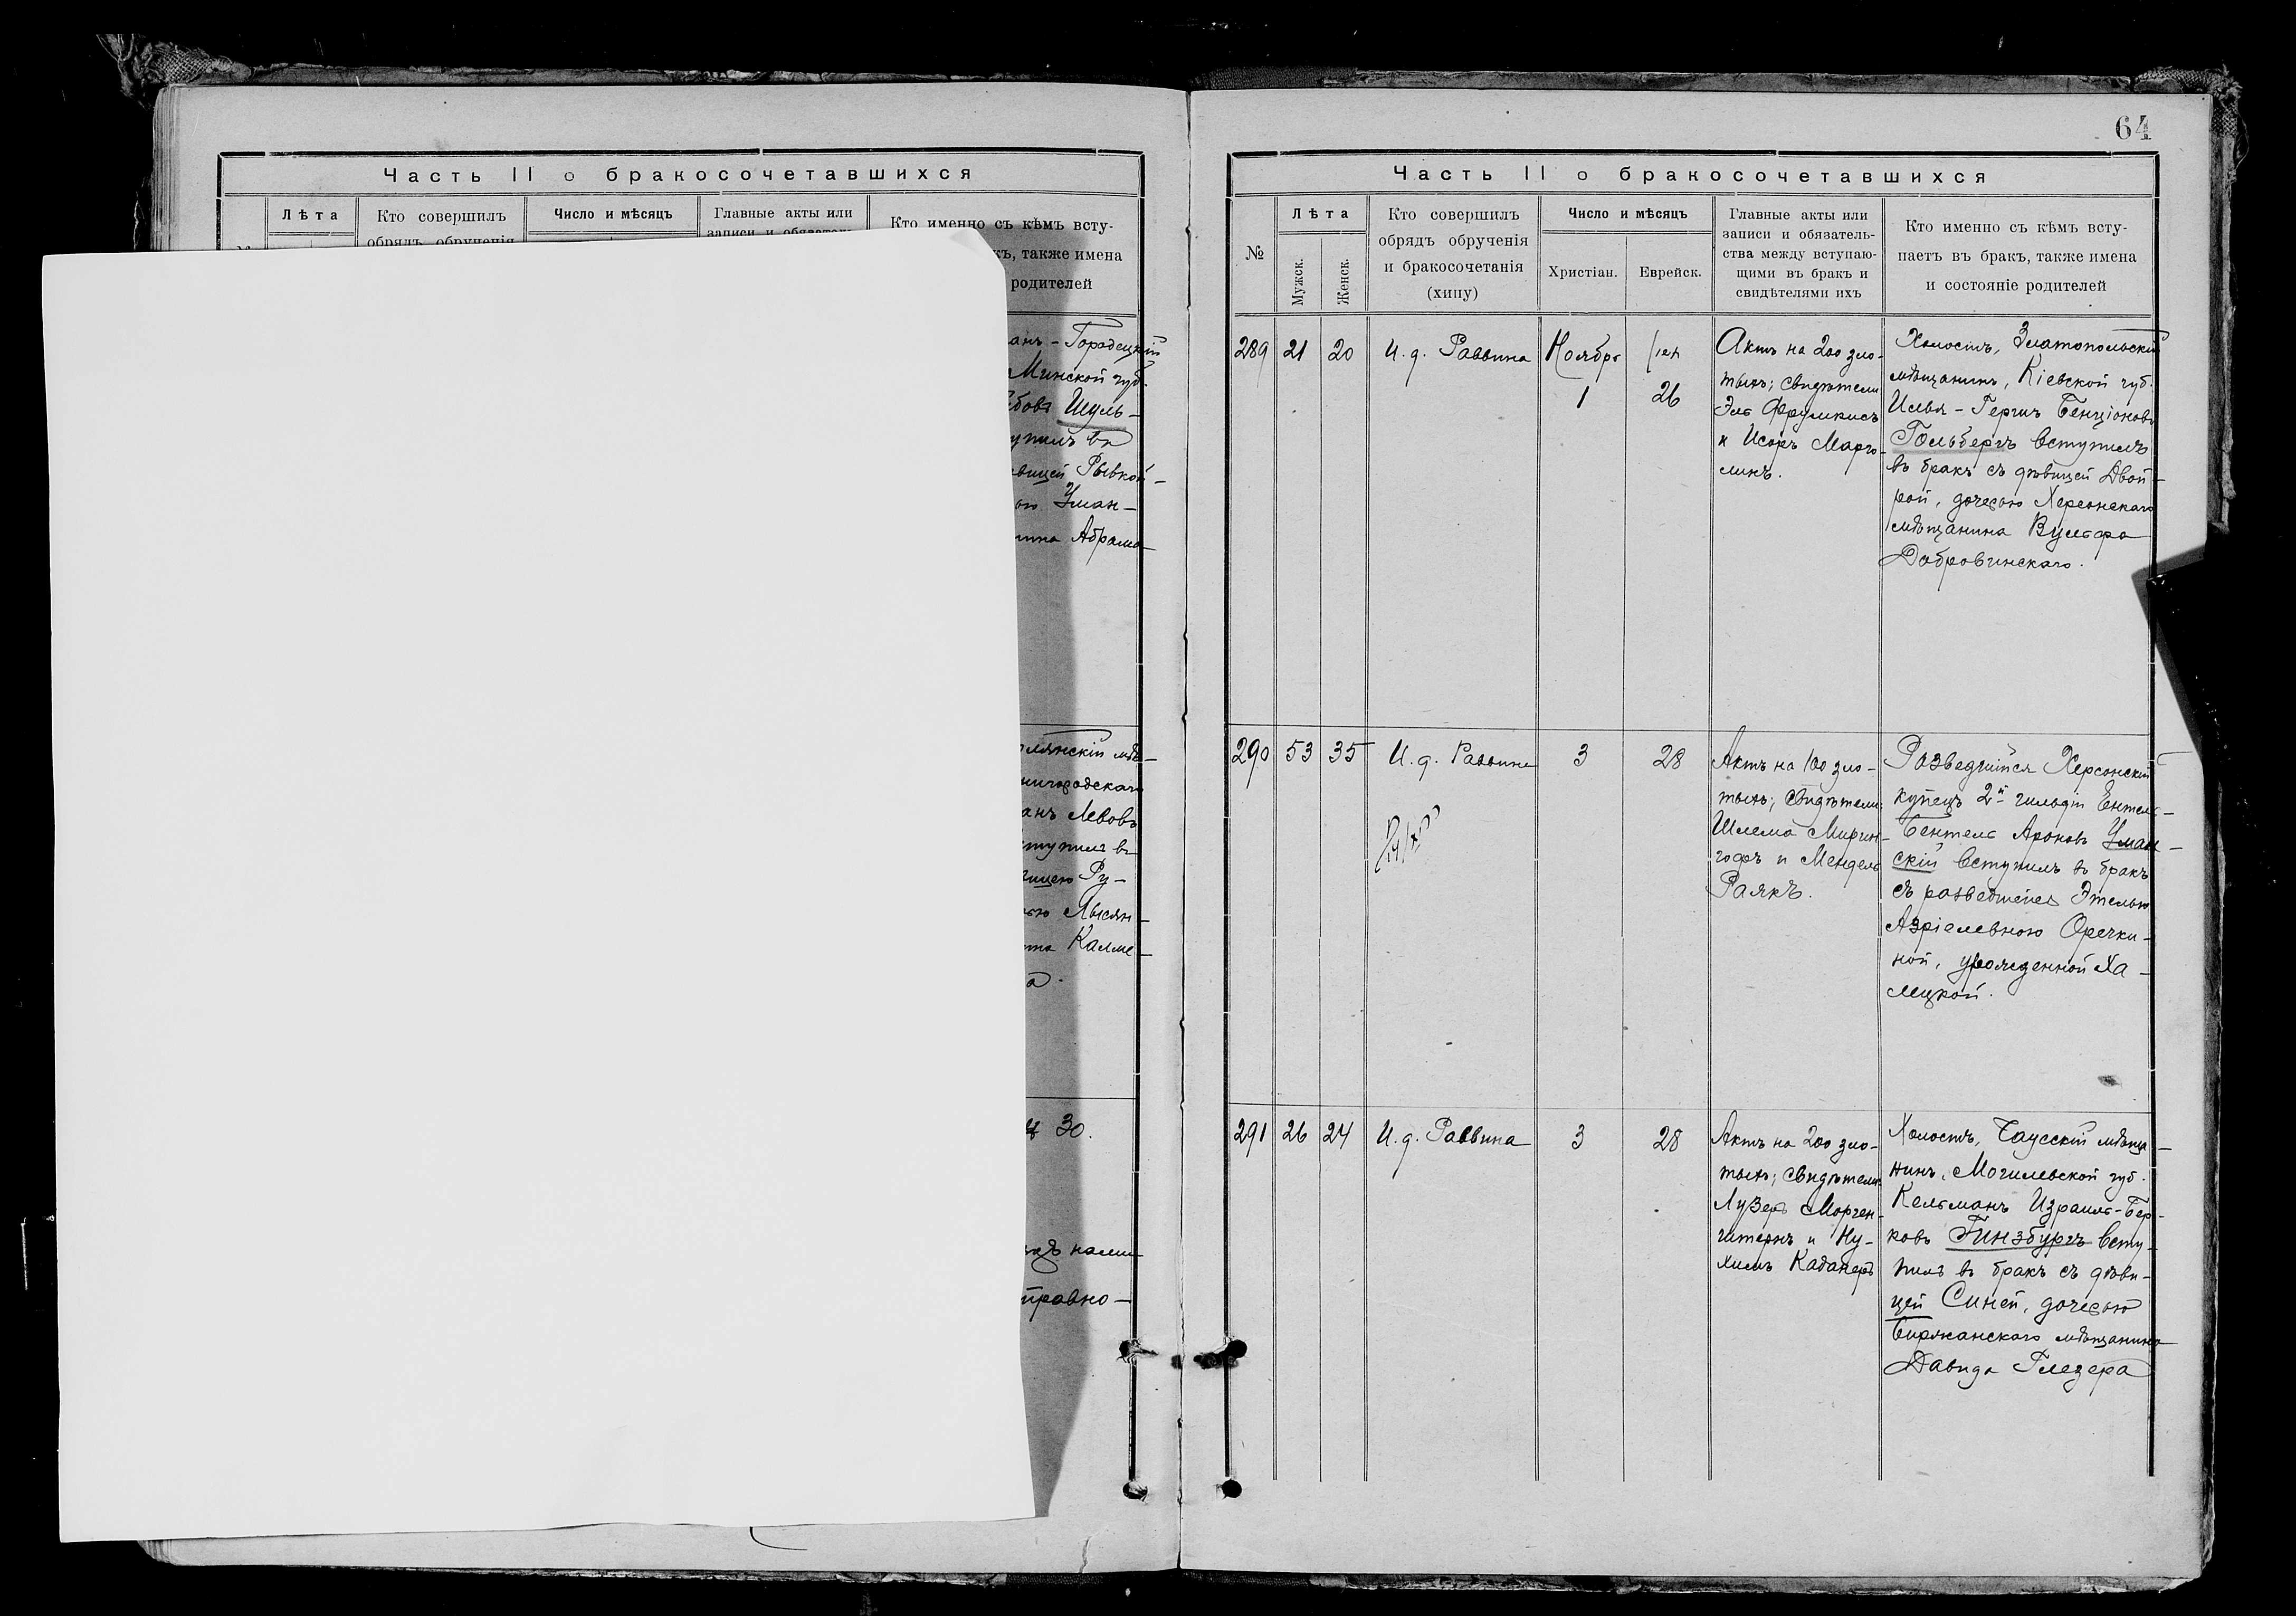 Часть II о бракосочетавшихся
Лѣта
Кто совершилъ
обрядъ обрученія
Число и мѣсяцъ
Главные акты или
записи и обязатель
Кто именно съ кѣмъ всту-
къ, также имена
родителей
анъ - Городецкій
Минской губ.
Шуль-
упилъ въ
Рывкой-
Уман-
Абрама
нигородскаго
анъ Лебовъ
ступилъ въ
Ру-
Лысян-
Калме-
а.
30.
правно-
64
Часть II о бракосочетавшихся
№
Лѣта
Мужск.
Женск.
Кто совершилъ
обрядъ обрученія
и бракосочетанія
(хипу)
Число и мѣсяцъ
Христіан.
Еврейск.
Главные акты или
записи и обязатель-
ства между вступаю-
щими въ бракъ и
свидѣтелями ихъ
Кто именно съ кѣмъ всту-
паетъ въ бракъ, также имена
и состояніе родителей
289
21
20
И. д. Раввина
Ноябрь
1
26
Актъ на 200 зло-
тыхъ; свидѣтели
Эль Фрумкисъ
и Исоръ Марго-
линъ.
Холостъ, Златопольскій
мѣщанинъ, Кіевской губ.
Илья - Гершъ Бенціоновъ
Гольбергъ вступилъ
въ бракъ съ дѣвицей Двой-
рой, дочерью Херсонскаго
мѣщанина Вульфа
Добровинскаго.
290
53
35
И. д. Раввина
3
28
Актъ на 100 зло-
тыхъ; свидѣтели:
Шлема Мирин-
гофъ и Мендель
Раякъ.
Разведшійся Херсонскій
купецъ 2й гильдіи Ентель-
Бентель Ароновъ Уман-
скій вступилъ въ бракъ
съ разведшейся Этелью
Азріелевною Оречки-
ной, урожденной Ха-
лецкой.
291
26
24
И. д. Раввина
3
28
Актъ на 200 зло-
тыхъ; свидѣтели
Лузеръ Морген-
штернъ и Ну-
химъ Каданеръ
Холостъ, Чаусскій мѣща-
нинъ, Могилевской губ.
Кельманъ Израиль-Бер-
ковъ Гинзбургъ всту-
пилъ въ бракъ съ дѣви-
цей Симей, дочерью
Биржанскаго мѣщанина
Давида Глезера